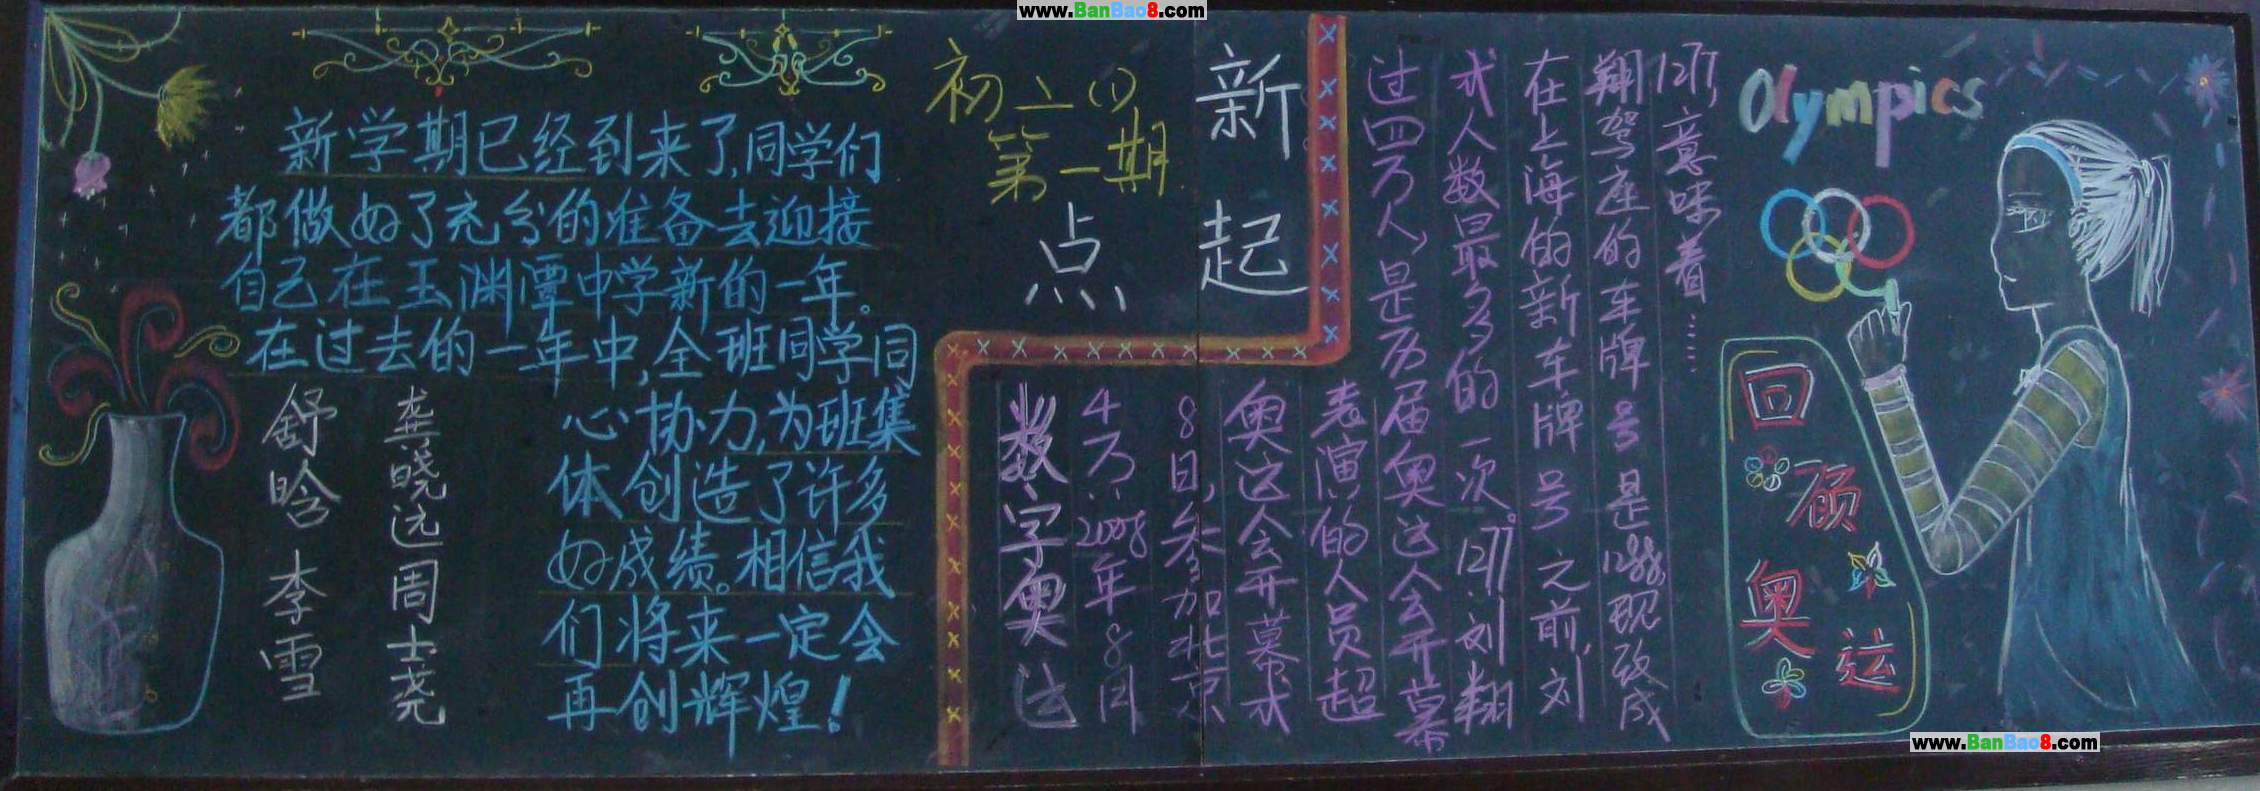 www.BanBao8.com
新学期已经到来了,同学们
都做好了充分的准备去迎接
自己在玉渊潭中学新的一年。
在过去的一年中,全班同学同
心协力,为班集
体创造了许多
好成绩。相信我
们将来一定会
再创辉煌!
龚晓远周士尧
舒晗 李雪
初二(1)
第一期
新
起
点
数字奥运
4万:2008年8月
8日,参加北京
奥运会开幕式
表演的人员超
过四万人,是历届奥运会开幕
式人数最多的一次。1277:刘翔
在上海的新车牌号之前,刘
翔驾座的车牌号是1288,现改成
1277,意味着……
Olympics
回顾
奥运
www.BanBao8.com